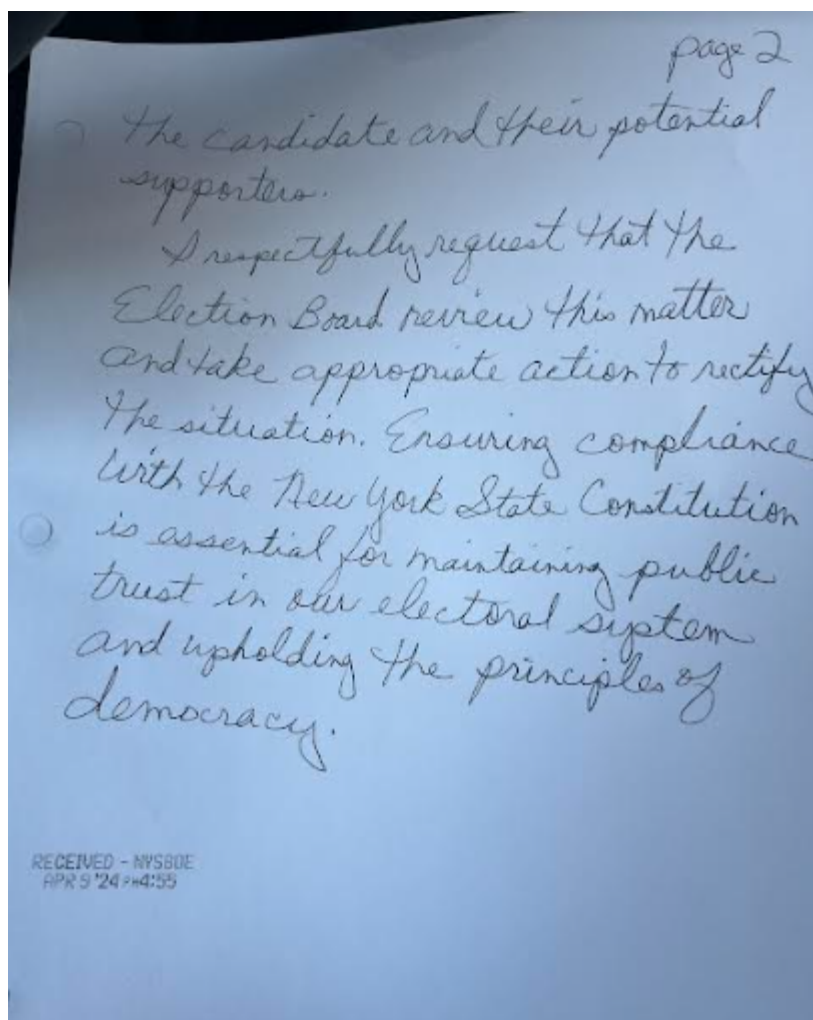 page 2
the candidate and their potential
supporters.
I respectfully request that the
Election Board review this matter
and take appropriate action to rectify
the situation. Ensuring compliance
with the New York State Constitution
is essential for maintaining public
trust in our electoral system
and upholding the principles of
democracy.
RECEIVED - NYSBOE
APR 9 '24 PM4:55